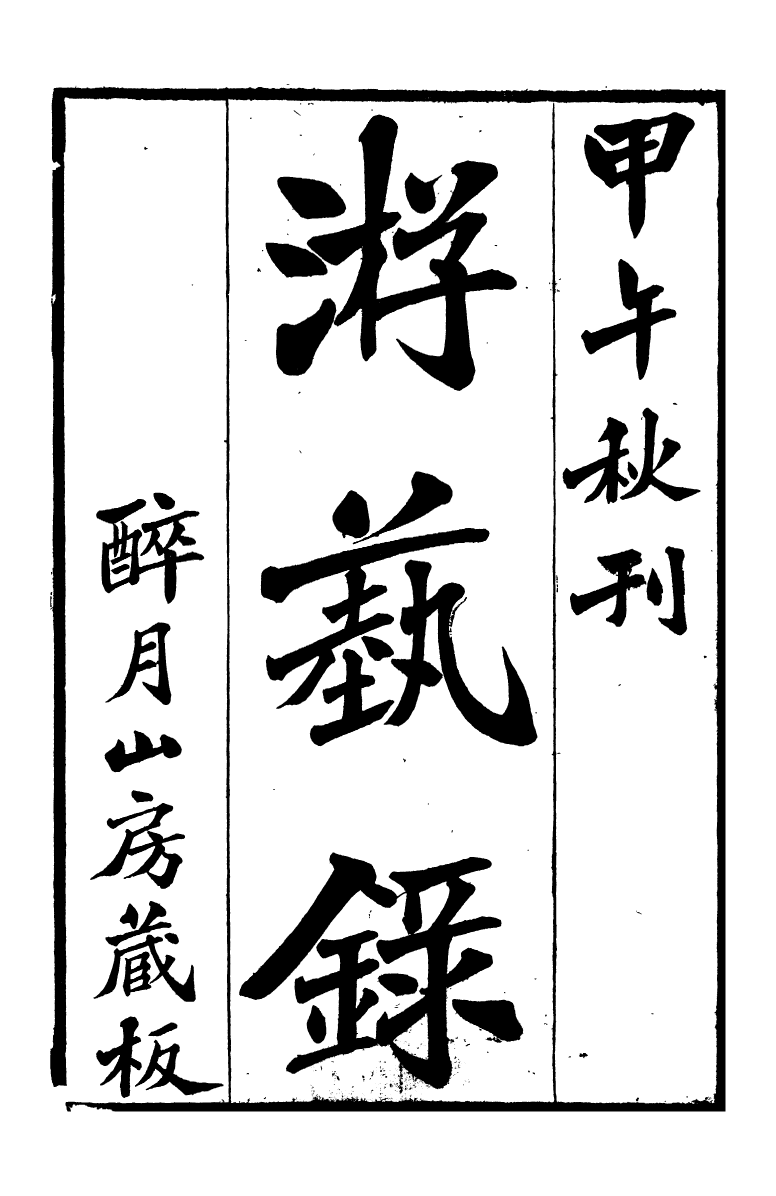 甲午秋刊
游蓺錄
醉月山房蔵板